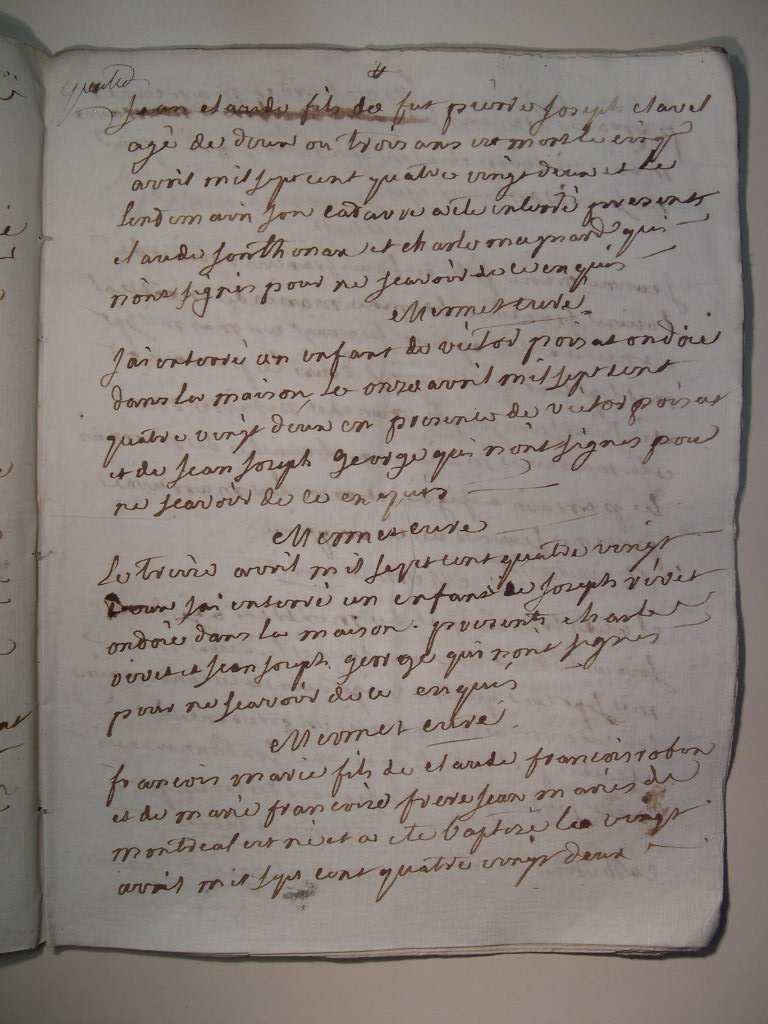 Jean claude fils de fut pierre Joseph clavel
agé de deux ou trois ans est mort le cinq
avril mil sept cent quatre vingt deux et le
lendemain son cadavre a éte enterré presents
claude sonthonax et charle magnard qui
n'ont signés pour ne scavoir de ce enquis
Mermet curé
J'ai enterré un enfant de victor poisat ondoié
dans la maison le onze avril mil sept cent
quatre vingt deux en presence de victor poisat
et de Jean Joseph george qui n'ont signés pour
ne scavoir de ce enquis
Mermet curé
Le treize avril mil sept cent quatre vingt
Deux J'ai enterré un enfant de Joseph vivet
ondoié dans la maison. presents charle
vivet et Jean Joseph george qui n'ont signés
pour ne scavoir de ce enquis
Mermet curé
françois marie fils de claude françois robin
et de marie françoise frere Jean mariés de
montreal est né et a éte baptisé le vingt
avril mil sept cent quatre vingt deux